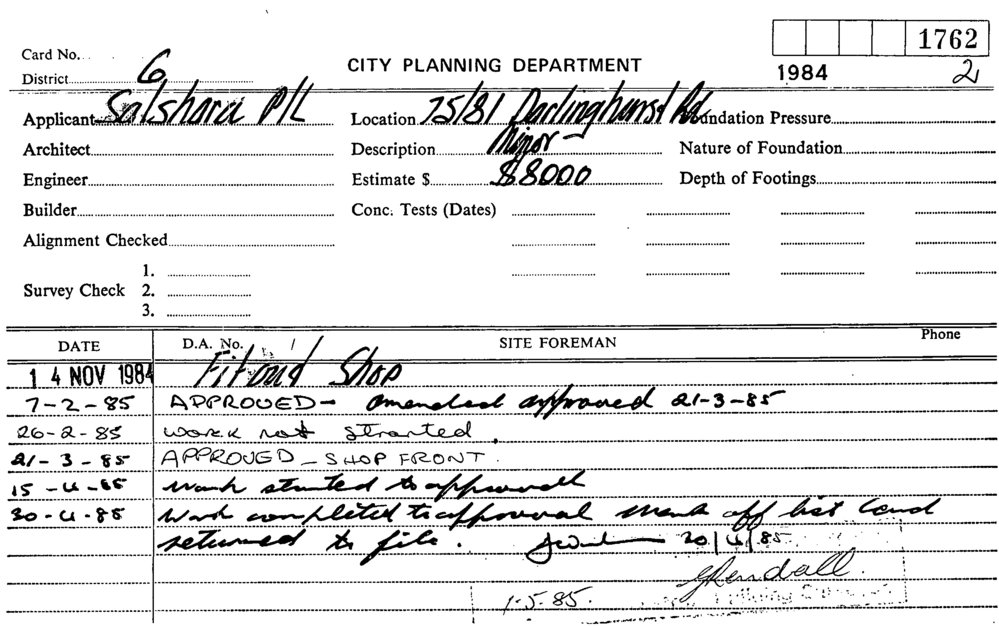 1762
Card No.
District 6
CITY PLANNING DEPARTMENT
1984 2
Applicant Salshara P/L Location 75/81 Darlinghurst Rd Foundation Pressure
Architect Description Minor Nature of Foundation
Engineer Estimate $ $8000 Depth of Footings
Builder Conc. Tests (Dates)
Alignment Checked
1.
Survey Check 2.
3.
DATE D.A. No. / SITE FOREMAN Phone
14 NOV 1984 Fitout Shop
7-2-85 APPROVED - Amended approved 21-3-85
26-2-85 work not strarted.
21-3-85 APPROVED - SHOP FRONT.
15-4-85 work started to approval
30-4-85 Work completed to approval mark off list Card
returned to file. 30/4/85
GKendall.
1-5-85.